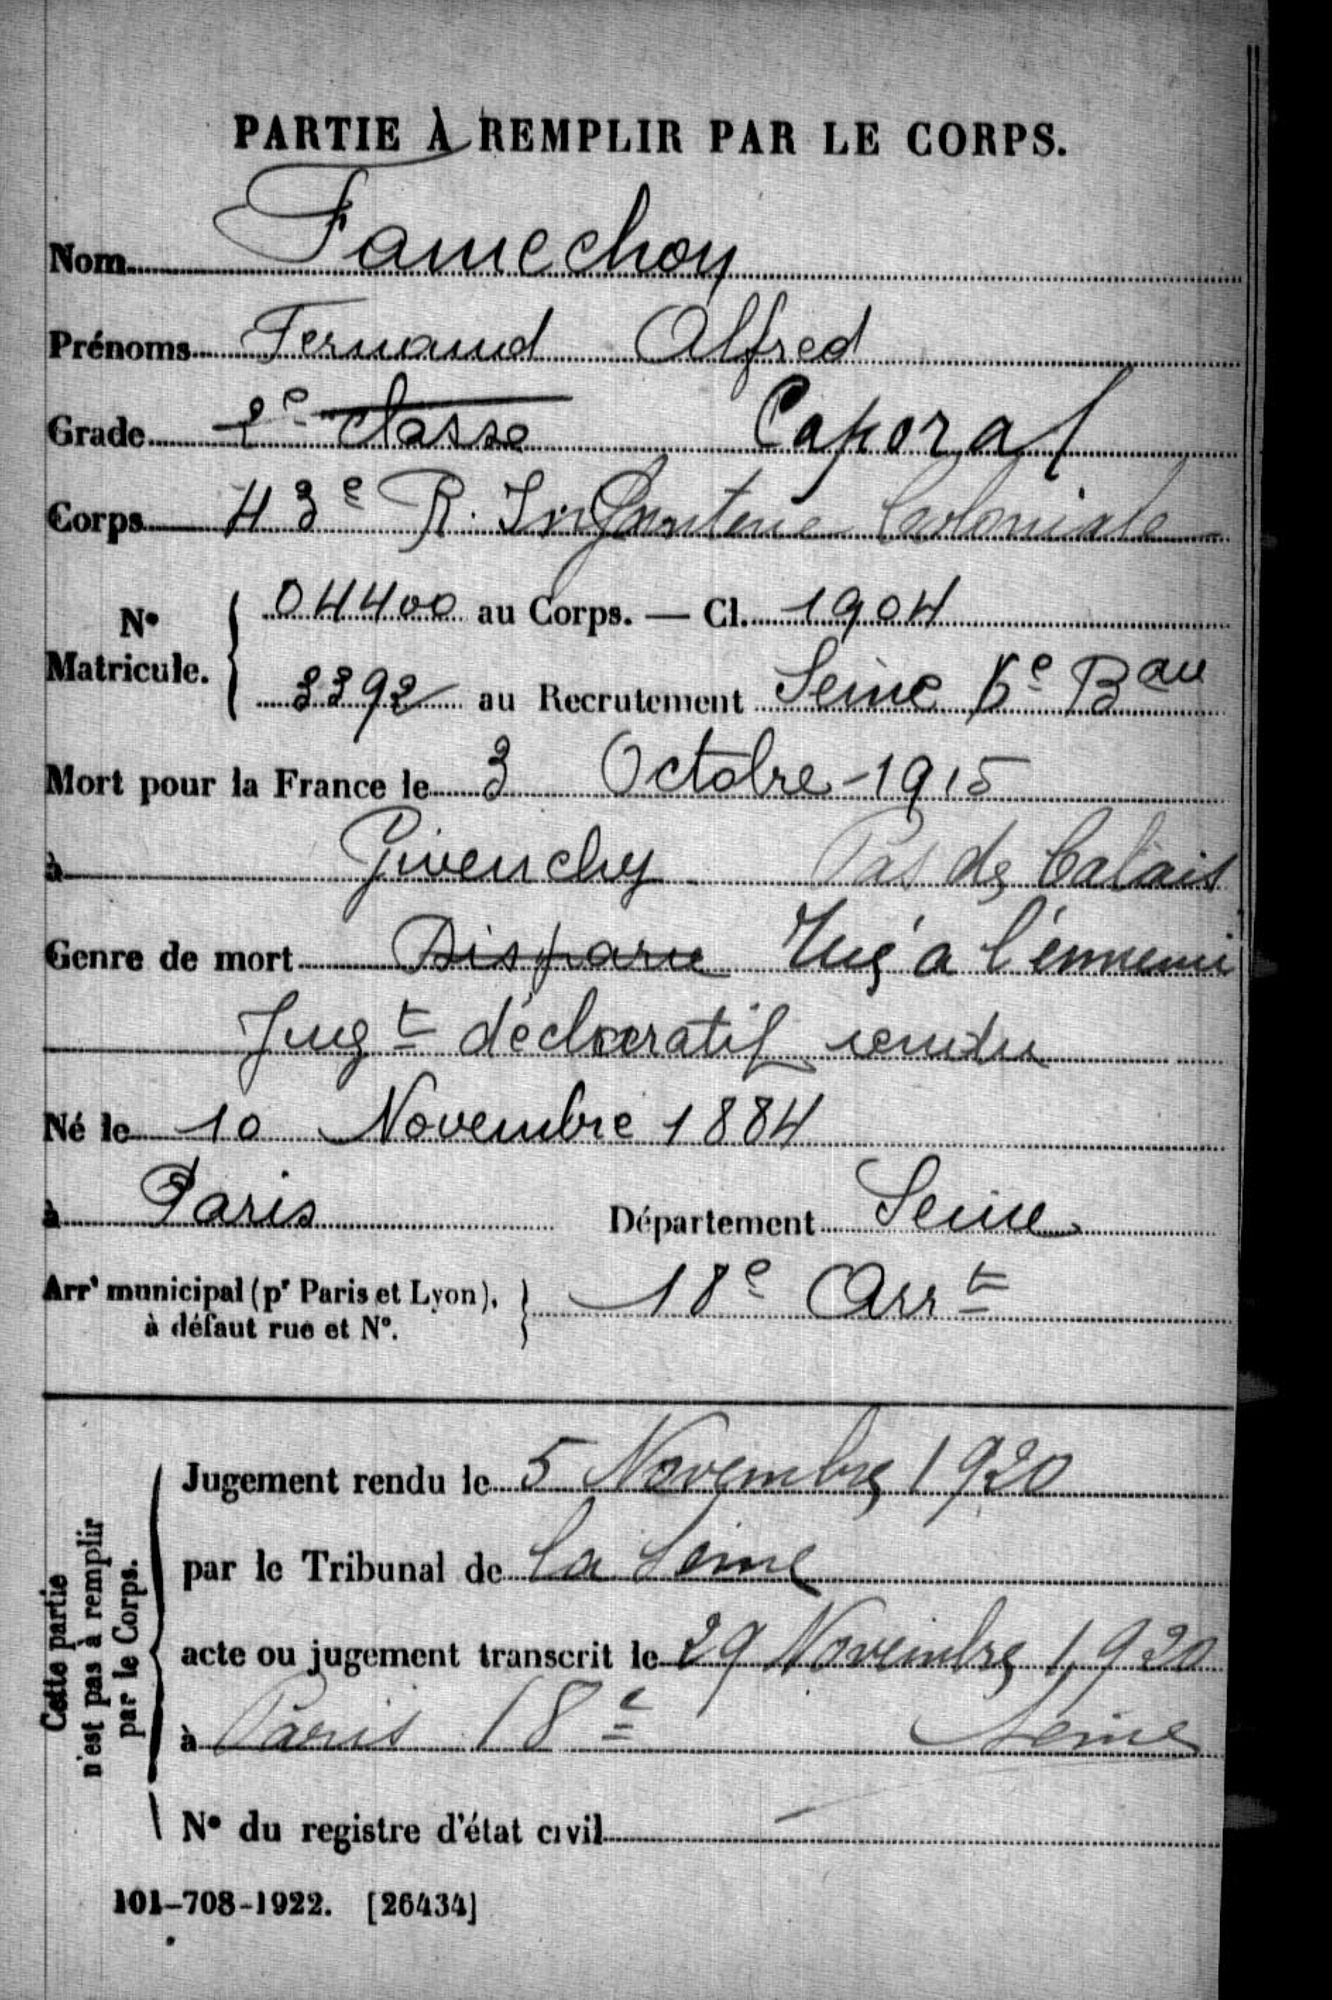 PARTIE À REMPLIR PAR LE CORPS.
Nom Famechon
Prénoms Fernand Alfred
Grade 2e classe Caporal
Corps 43e R. Infanterie Coloniale
No Matricule. 04400 au Corps. — Cl. 1904
3392 au Recrutement Seine 6e Bau
Mort pour la France le 3 Octobre - 1915
à Givenchy Pas de Calais
Genre de mort Disparu Tué à l'ennemi
Jugt déclaratif rendu
Né le 10 Novembre 1884
à Paris Département Seine
Arrt municipal (pr Paris et Lyon), à défaut rue et No. 18e Arrt
Cette partie n'est pas à remplir par le Corps.
Jugement rendu le 5 Novembre 1920
par le Tribunal de la Seine
acte ou jugement transcrit le 29 Novembre 1920
à Paris 18e Seine
No du registre d'état civil —
101-708-1922. [26434]